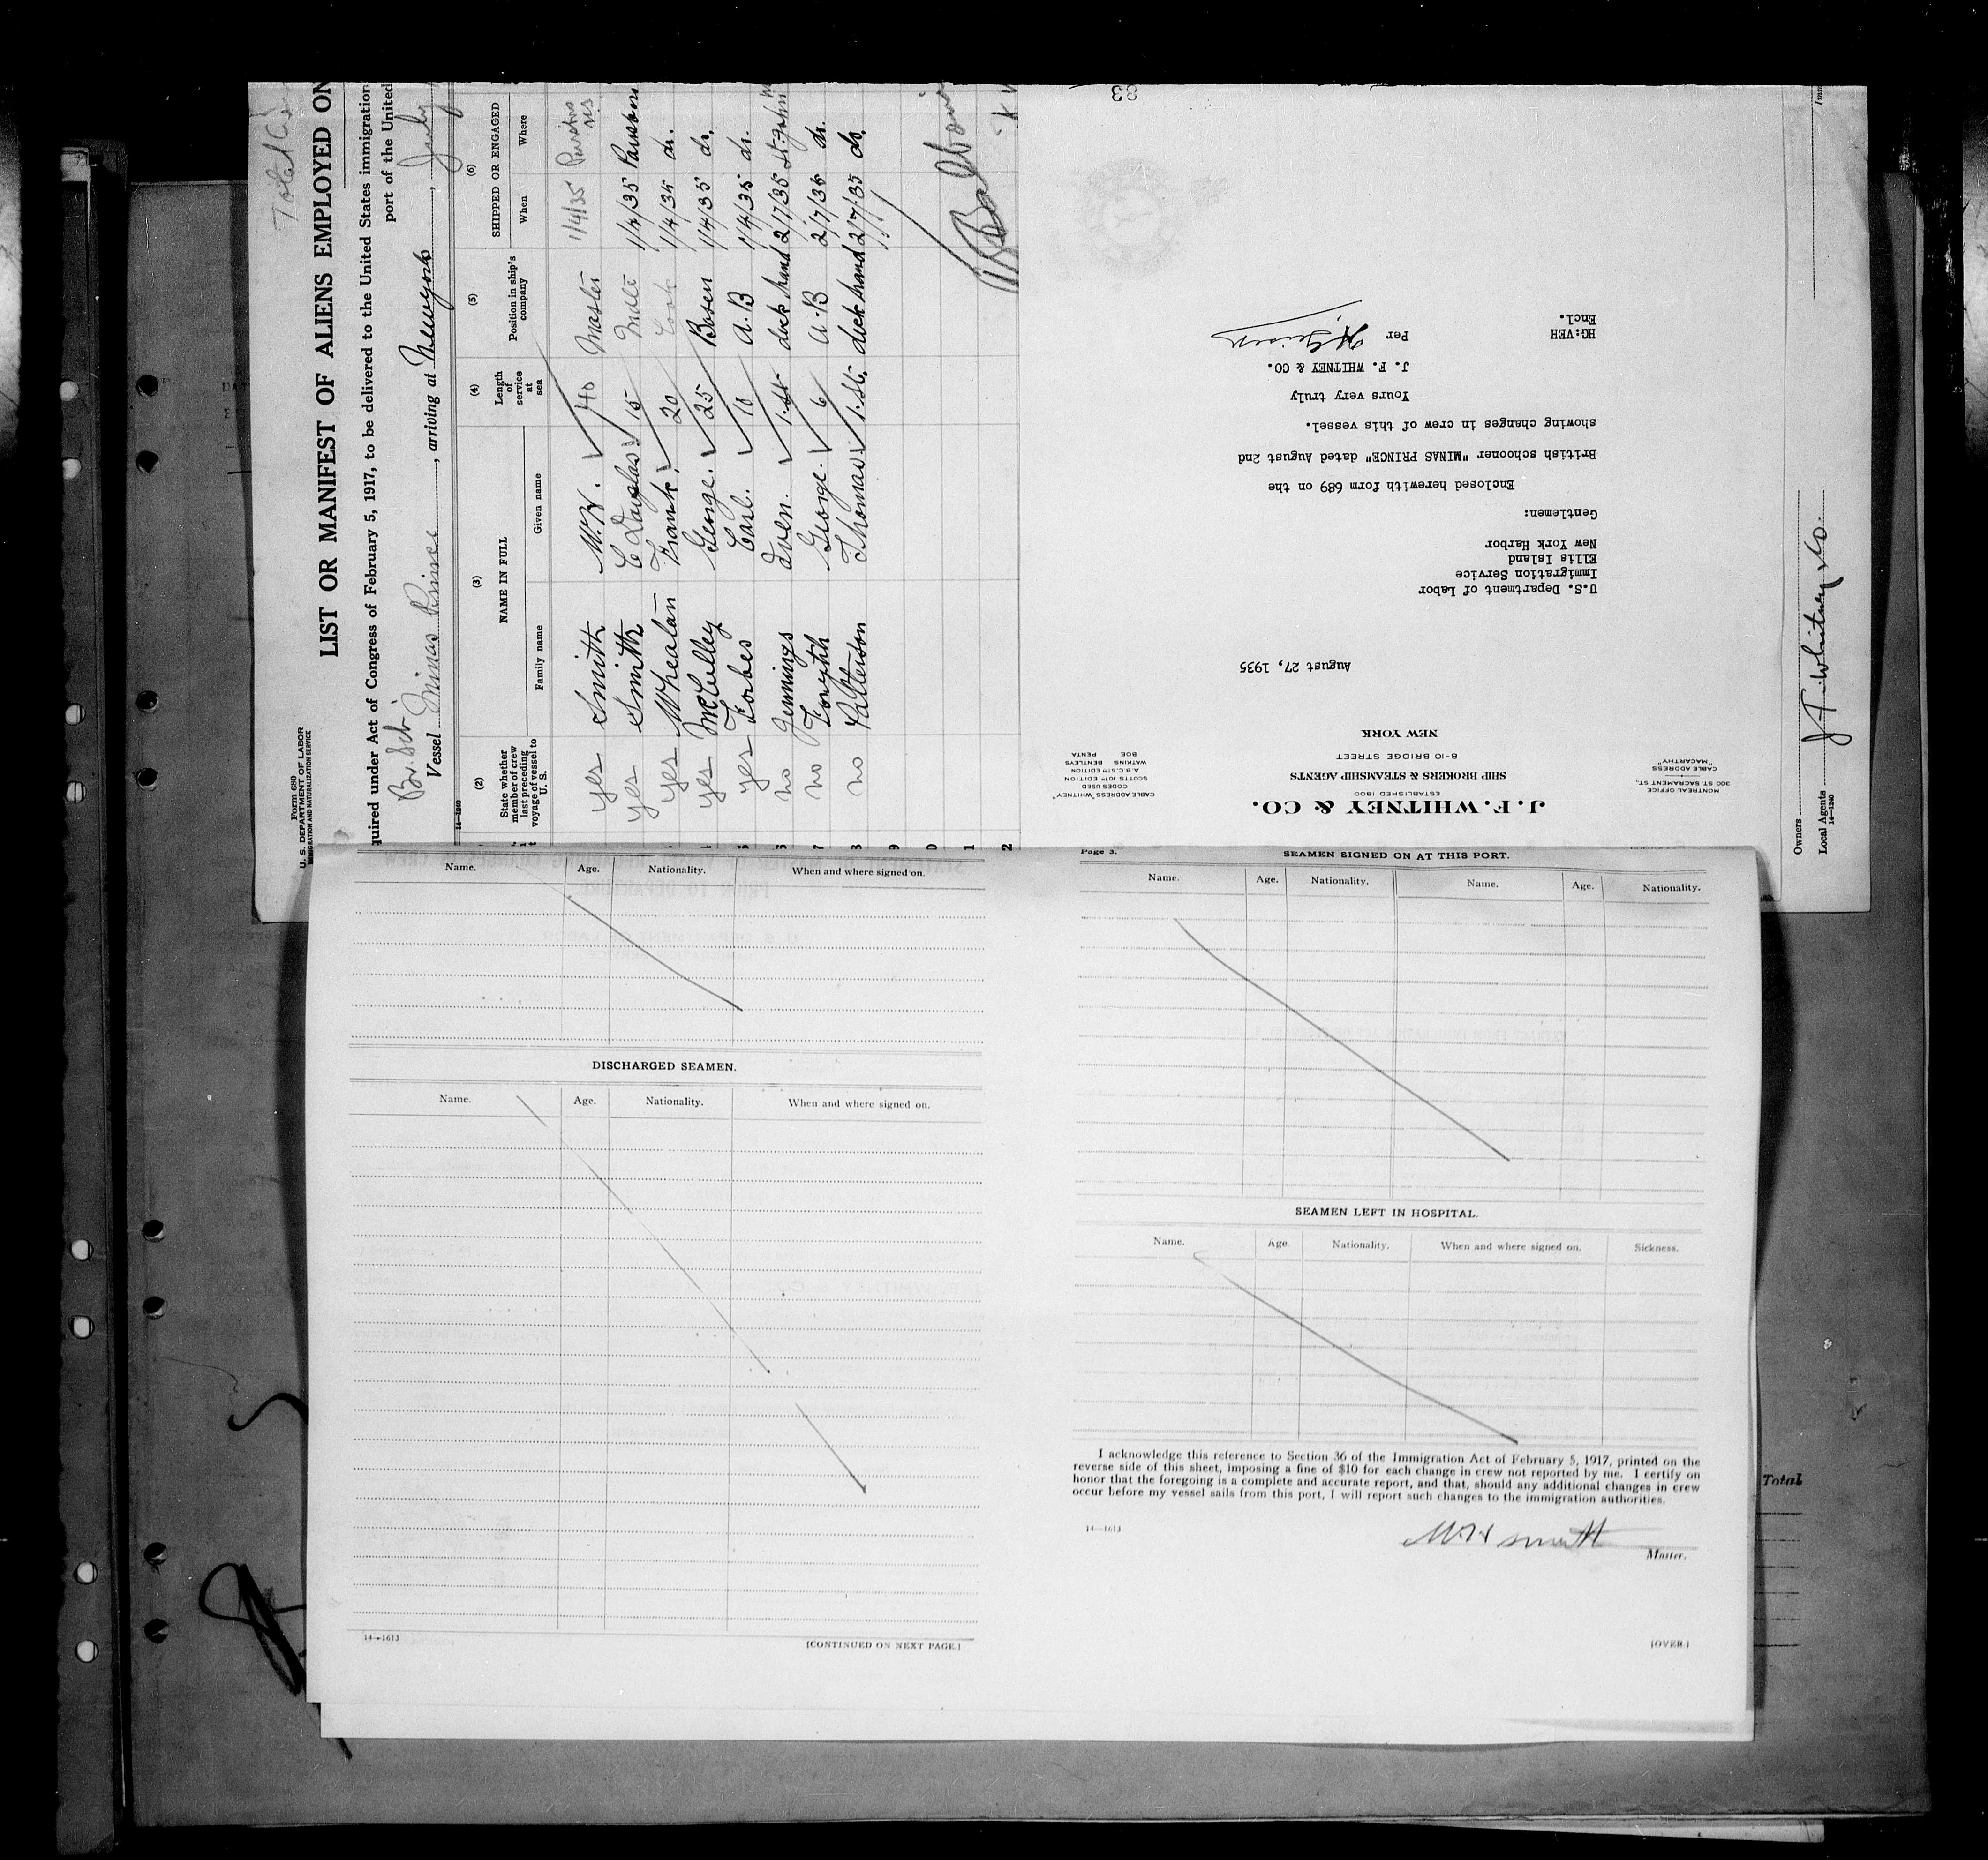 Form 689
U. S. DEPARTMENT OF LABOR
IMMIGRATION AND NATURALIZATION SERVICE
Total
LIST OR MANIFEST OF ALIENS EMPLOYED ON
quired under Act of Congress of February 5, 1917, to be delivered to the United States immigration
port of the United
Br. Sch.
Vessel Minas Prince, arriving at Newyork,
14—1240
(2) (3) (4) (5) (6)
State whether member of crew last preceding voyage of vessel to U. S.
NAME IN FULL
Family name Given name
Length of service at sea
Position in ship's company
SHIPPED OR ENGAGED
When Where
yes Smith W.H. 40 Master 1/4/35
yes Smith C Douglas 15 Mate 1/4/35
yes Whealan Frank. 20 Cook 1/4/35 do.
yes McCulley George. 25 Bosen 1/4/35 do.
yes Forbes Carl. 10 A.B 1/4/35 do.
no Jennings 1.st deck hand 2/7/35 St. John
no Forsyth George. 6 A.B 2/7/35 do.
no Patterson Thomas 1.st. deck hand 2/7/35 do.
5
6
7
8
9
0
1
2
83
J. F. WHITNEY & CO.
ESTABLISHED 1800
SHIP BROKERS & STEAMSHIP AGENTS
8-10 BRIDGE STREET
NEW YORK
MONTREAL OFFICE
300 ST SACRAMENT ST.,
CABLE ADDRESS
"MACARTHY"
CABLE ADDRESS "WHITNEY"
CODES USED
SCOTTS 10TH EDITION
A.B.C. 5TH EDITION
WATKINS BENTLEYS
BOE PENTA
August 27, 1935
U.S. Department of Labor
Immigration Service
Ellis Island
New York Harbor
Gentlemen:
Enclosed herewith form 689 on the
British schooner "MINAS PRINCE" dated August 2nd
showing changes in crew of this vessel.
Yours very truly
J. F. WHITNEY & CO.
Per
HG:VEH
Encl.
Owners
Local Agents J. F. Whitney & Co.
14—1240
Name. Age. Nationality. When and where signed on.
DISCHARGED SEAMEN.
Name. Age. Nationality. When and where signed on.
14—1613
[CONTINUED ON NEXT PAGE.]
Page 3.
SEAMEN SIGNED ON AT THIS PORT.
Name. Age. Nationality. Name. Age. Nationality.
SEAMEN LEFT IN HOSPITAL.
Name. Age. Nationality. When and where signed on. Sickness.
I acknowledge this reference to Section 36 of the Immigration Act of February 5, 1917, printed on the
reverse side of this sheet, imposing a fine of $10 for each change in crew not reported by me. I certify on
honor that the foregoing is a complete and accurate report, and that, should any additional changes in crew
occur before my vessel sails from this port, I will report such changes to the immigration authorities.
14—1613
W H Smith
Master.
[OVER.]
Total